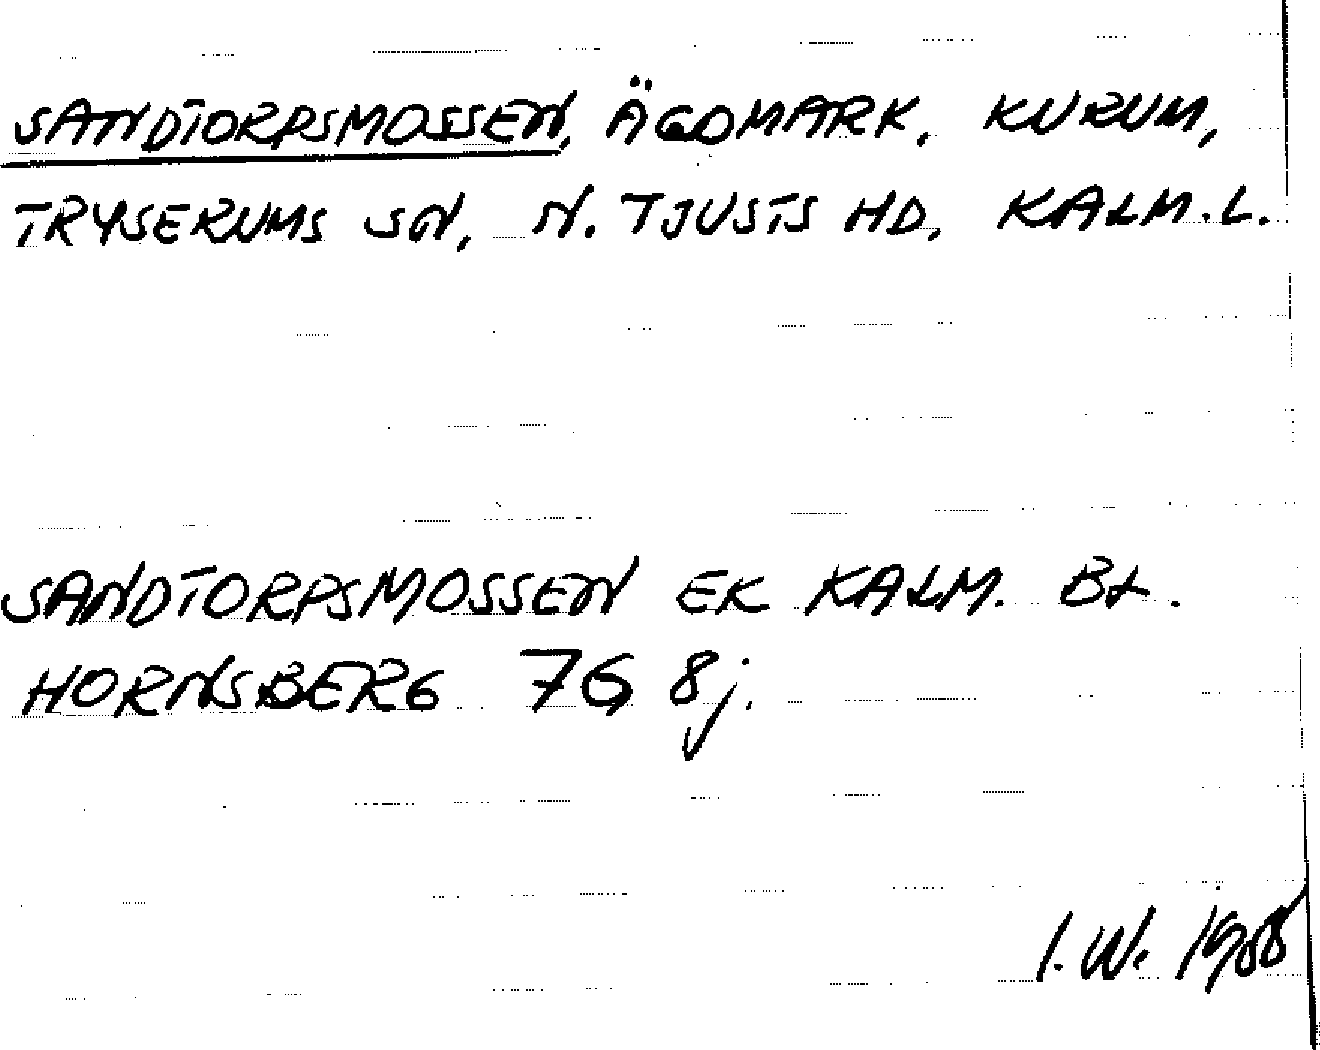 SANDTORPSMOSSEN, ÄGOMARK, KURUM,
TRYSERUMS SN, N. TJUSTS HD, KALM. L.
SANDTORPSMOSSEN EK KALM. BL.
HORNSBERG 7G 8j.
I.W. 1988